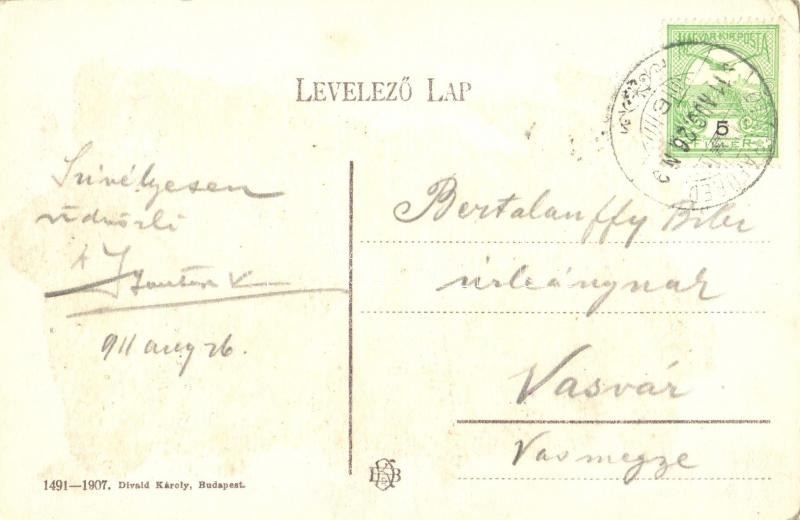 LEVELEZŐ LAP
MAGYAR·KIR·POSTA
5
FILLÉR
911 AUG 26
Szivélyesen
üdvözli
911 aug 26.
Bertalanffy Béla
úrleánynak
Vasvár
Vasmegye
1491—1907. Divald Károly, Budapest.